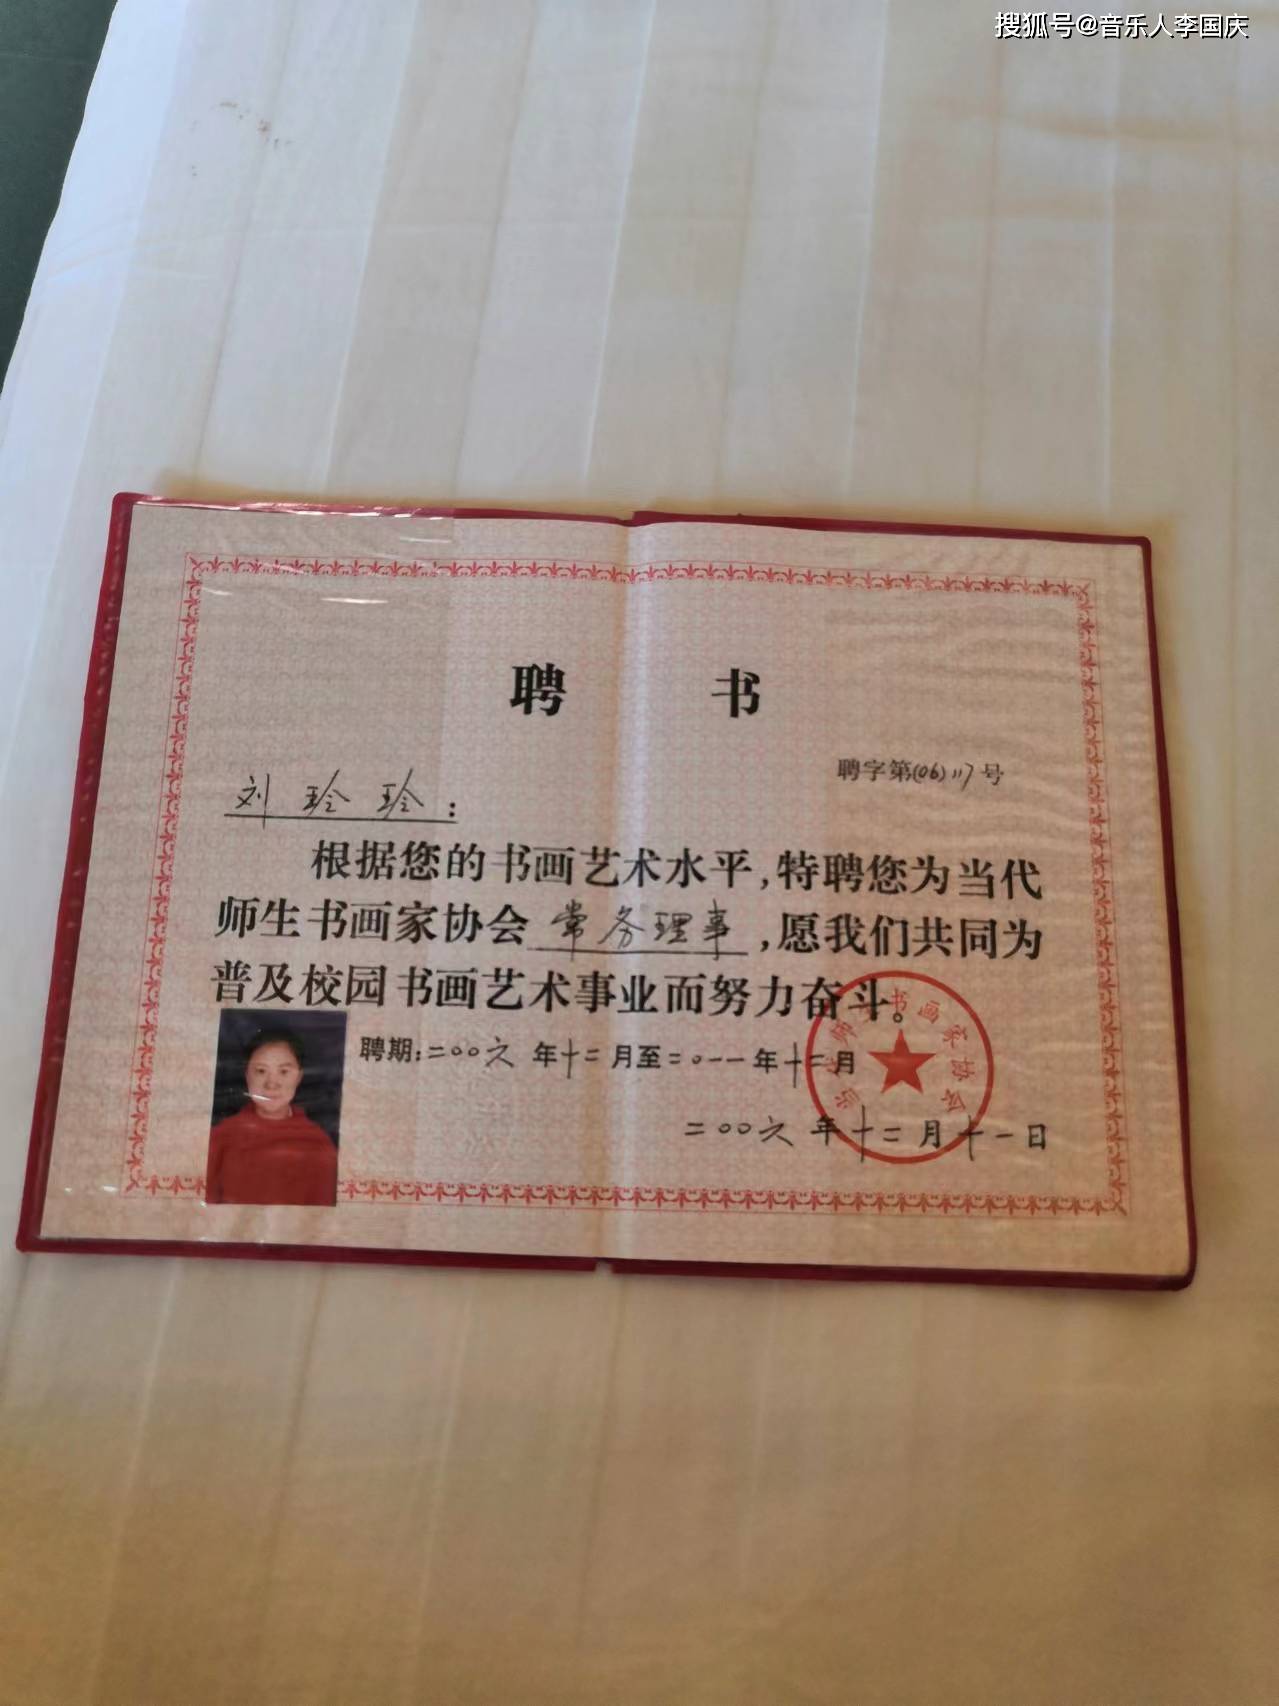 搜狐号@音乐人李国庆
聘 书
聘字第(06)117号
刘玲玲：
根据您的书画艺术水平，特聘您为当代
师生书画家协会常务理事，愿我们共同为
普及校园书画艺术事业而努力奋斗。
聘期：二〇〇六年十二月至二〇一一年十二月
二〇〇六年十二月十一日
当代师生书画家协会